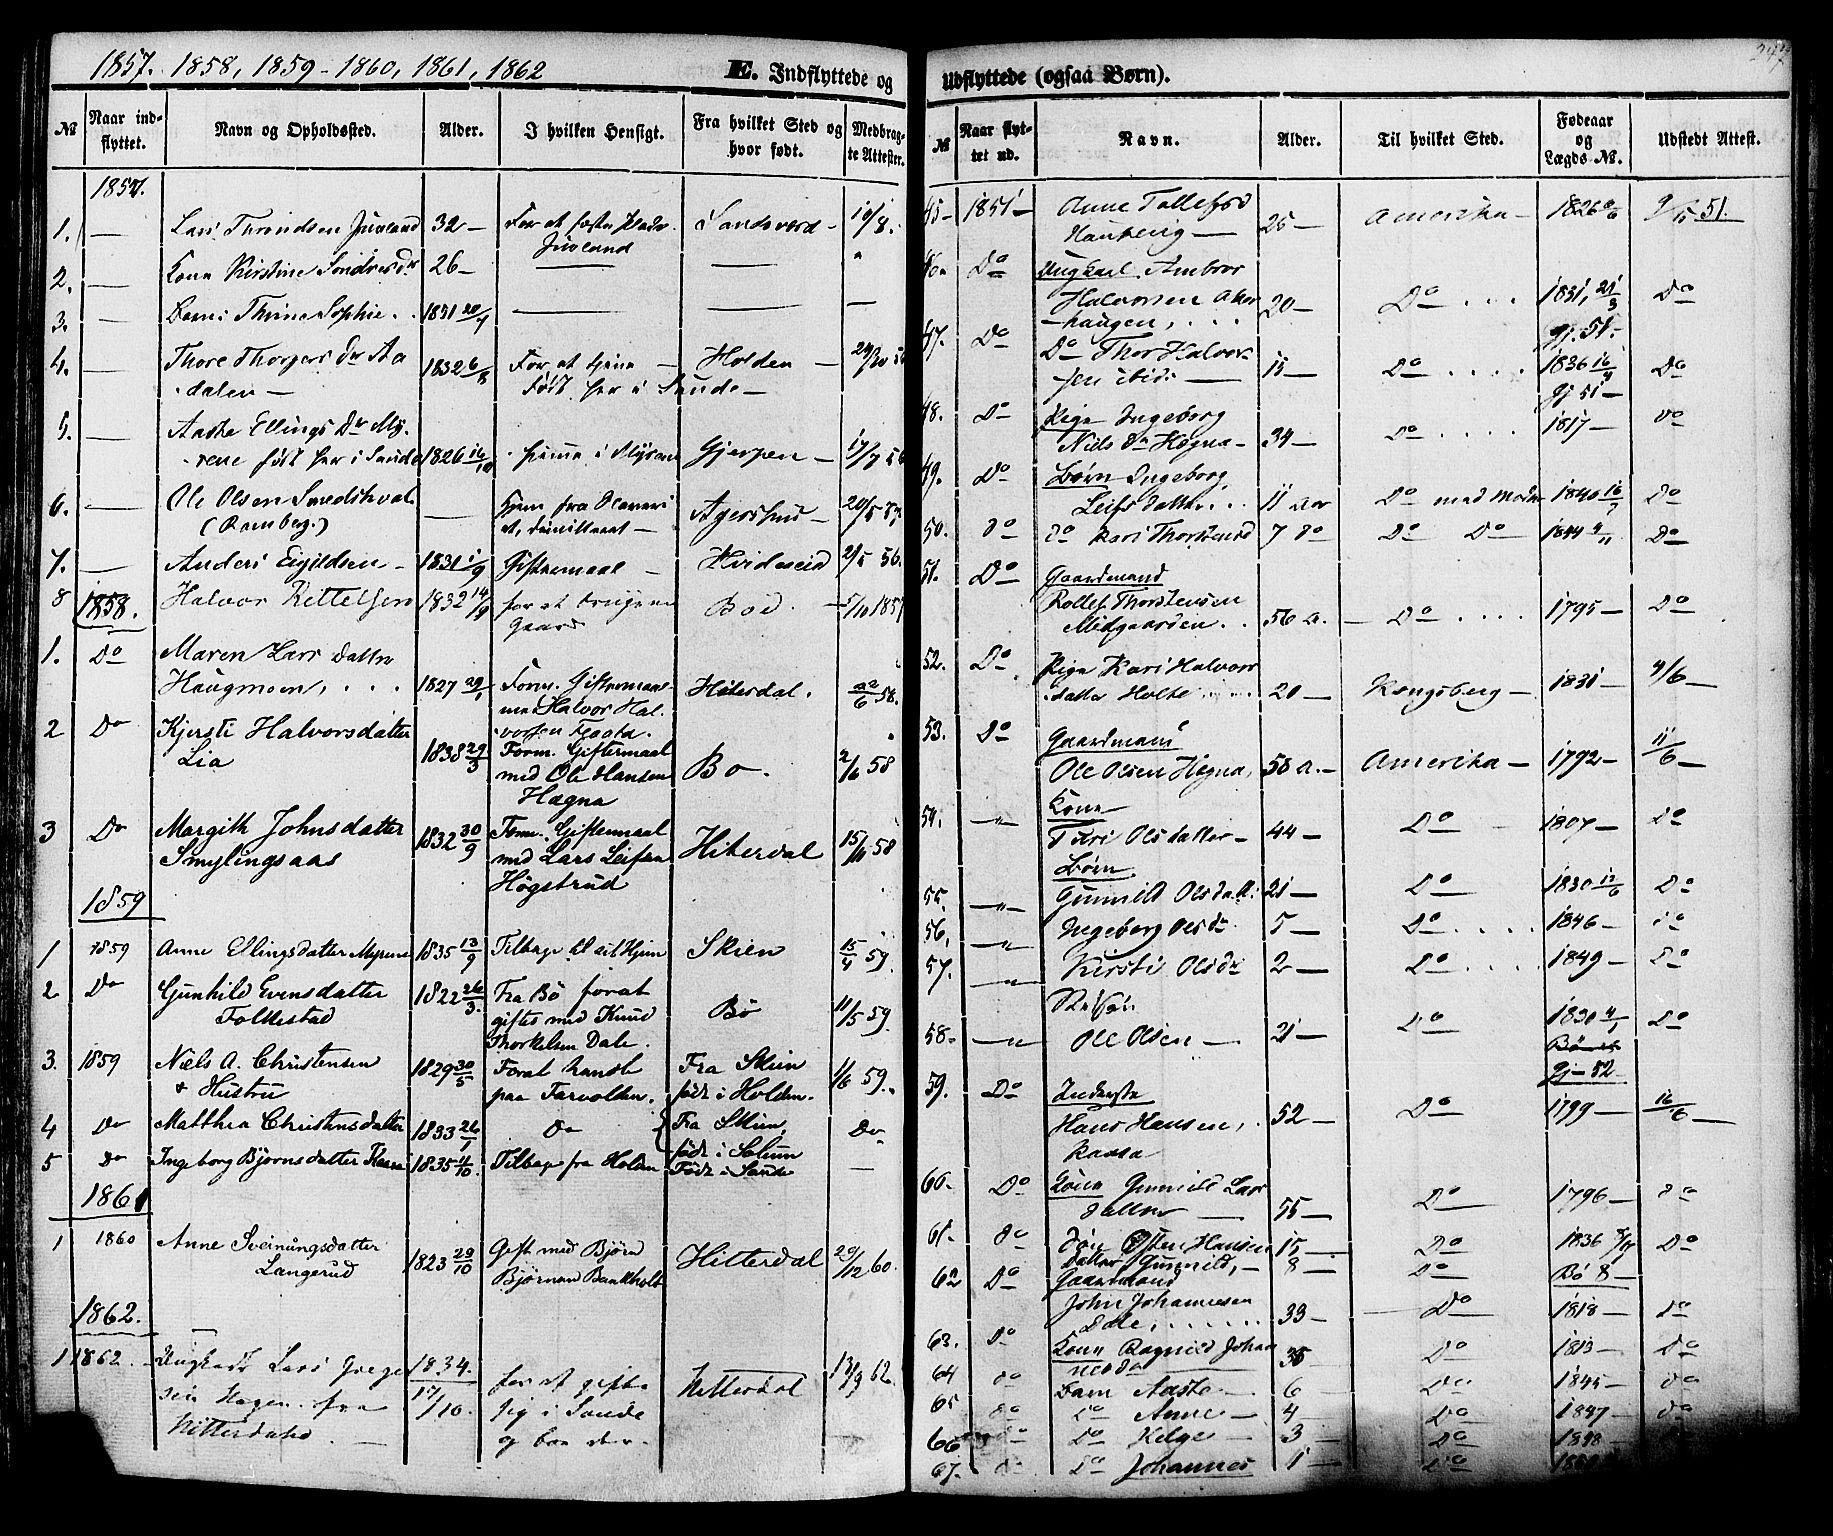 1857. 1858, 1859 - 1860, 1861, 1862
E. Indflyttede og
№ Naar ind-flyttet. Navn og Opholdssted. Alder. I hvilken Hensigt. Fra hvilket Sted og hvor født. Medbrag-te Attester.
1857.
1. — Lars Throndsen Juveland 32 — For at fæste Plads Juveland Sandsværd — 10/8.
2. — Kone Kirstine 26 — — —
3. — Barn: Thrine Sophie . . 1851 20/7 — — —
4. — Thore Thorgers Dr Aa
dalen — 1832 6/8 For at tjene — Holden —
Født her i Sande —
5. — Aaste Ellings Dr My-
rene født her i Sande 1826 16/10 hjemme i Myrene Gjerpen — 17/7 56
6. — Ole Olsen
(Ramberg.) — Agershuus — 20/5 57
7. — Anders Eigildsen — 1831 1/9 Giftermaal — Hvideseid 2/5 56.
8 1858. Halvor Kittelsen 1832 14/9 for at bruge en Gaard Bøe. 5/10 1857
1. Do Maren Lars datter
Haugmoen, . . . 1827 29/1 Form. Giftermaal
med Halvor Hal-
vorsen Hiterdal. 22/6 58.
2 Do Kjersti Halvorsdatter
Lia 1838 29/3 Form. Giftermaal
med Ole Hansen
Hægna Bø. 2/6 58
3 Do Margith Johnsdatter
Smylingsaas 1832 30/9 Form. Giftermaal
med Lars Leifsen
Högstrud Hiterdal 15/11 58
1859
1 1859 Anne Ellingsdatter Myrene 1835 13/9 Tilbage til sit Hjem Skien 15/4 59.
2 Do Gunhild Evensdatter
Folkestad 1822 26/3. Fra Bö forat
giftes med Knud
Thorkelsen Dale. Bö 11/5 59.
3. 1859 Niels A. Christensen
& Hustru 1829 30/5 Forat
paa Farvolden. Fra Skien
född i Holden. 1/6 59.
4 Do Matthea Christensdatter 1833 26/1 Do Fra Skien,
född i Solum Do
5 Do Ingeborg Björnsdatter 1835 4/10. Tilbage fra Holden Född i Sande —
1861
1 1860 Anne Sveinungsdatter
Langerud 1823 29/10 Gift med Björn
Björnsen Bankholt Hitterdal 20/12 60.
1862.
1 1862. Ungkarl Lars Grege
sen Hagen fra
Hitterdahl. — 1834. 17/10. for at gifte
sig i Sande
og boe der. Hitterdal 13/9 62.
Udflyttede (ogsaa Børn).
247
№ Naar flyt-tet ud. Navn. Alder. Til hvilket Sted. Fødeaar og Lægds №. Udstedt Attest.
45 — 1851 — Anne Tollefsd
Haukeng — 25 — Amerika — 1826 51.
46. Do Ungkarl Ambror
Halvorsen
haugen, . . . 20 — Do . . . 1831, 21/3 Do
gj. 51 —
47. Do Do Thor Halvor
sen ibid: — 15 — Do . . . . 1836 16/4 Do
gj 51 —
48. Do Pige Ingeborg
Niels Dr Hægna — 34 — Do . . . 1817 — Do
49. Do Børn Ingeborg
Leifs datter . . 11 aar Do med Moder 1840 16/7 Do
50. Do do Kari Thorstensd 7 do Do Do 1844 4/11 Do
51. Do Gaardmand
Rollef Thorstensen
Midgaarden . . 56 a. — Do . . . . 1795 — Do
52. Do Pige Kari Halvors
datter Holte 20 — Kongsberg — 1831 — 4/6 —
53. Do Gaardmand
Ole Olsen Hægna, 58 a. — Amerika — 1792 — 11/6 —
54. — " — Kone
Turi Olsdatter — 44 — Do 1807 — Do
Børn
55. — " — Gunnild Olsdatt: 21 — Do 1830 12/6 Do
56. — " — Ingeborg Olsdr 5 — Do . . . . 1846 — Do
57. — " — Kirsti Olsdr 2 — Do . . . . 1849 — Do
58. — " —
Ole Olsen — 21 — Do 1830 4/1 Do
gj — 52
59. Do Inderste
Hans Hansen,
Kaasa 52 — Do 1799 — 16/6 —
60. Do Kone Gunnild Lars
datter — 55 — Do 1796 — Do
61. Do Søn Østen Hansen 15 — Do 1836 Do
datter Gunnild, — 8 — Do Bö 8 —
62 Do Gaardmand
John Johannesen
Dale, . . . . . . 33 — Do 1818 — Do
63. Do Kone Ragnild Johan
nesdr 38 — Do 1813 — Do
64 do Barn Aaste — 6 Do 1845 — do
65 do Do Anne — 4 — Do 1847 — do
66 do Do Helge — 3 — Do 1848 — do
67. do Do Johannes 1 — Do